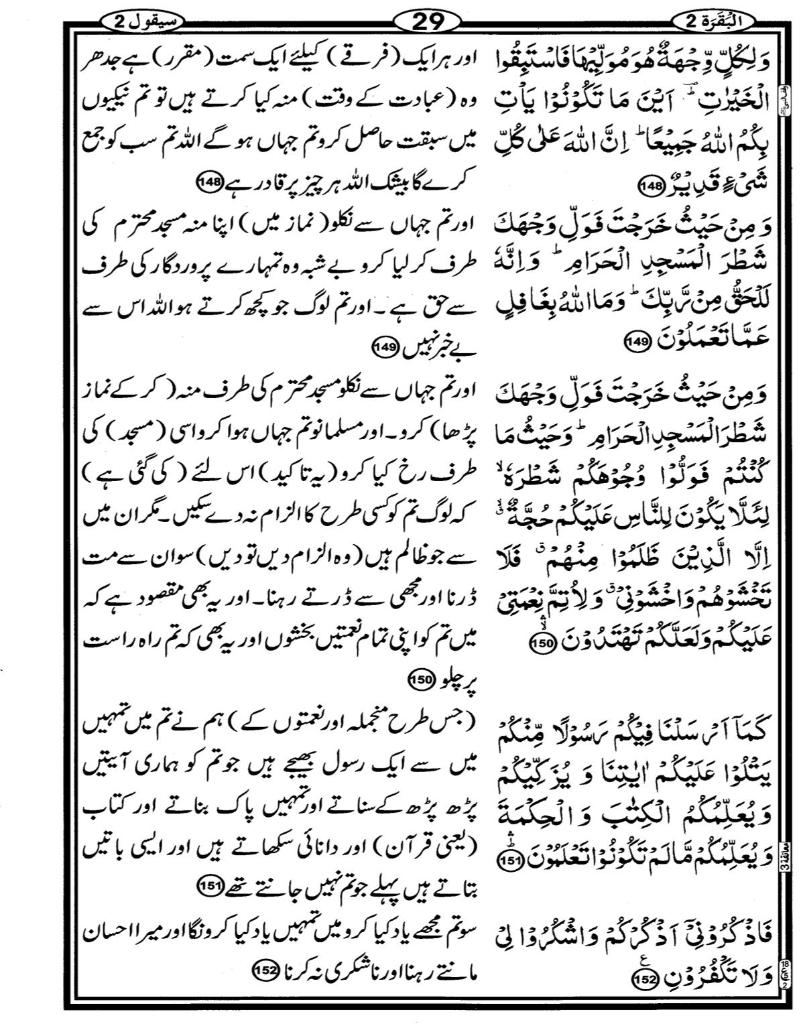 البقرة 2
29
سيقول 2
وَلِكُلٍّ وِّجْهَةٌ هُوَ مُوَلِّيْهَا فَاسْتَبِقُوا
الْخَيْرٰتِ ؕ اَيْنَ مَا تَكُوْنُوْا يَاْتِ
بِكُمُ اللّٰهُ جَمِيْعًا ؕ اِنَّ اللّٰهَ عَلٰى كُلِّ
شَىْءٍ قَدِيْرٌ 148
وَمِنْ حَيْثُ خَرَجْتَ فَوَلِّ وَجْهَكَ
شَطْرَ الْمَسْجِدِ الْحَرَامِ ؕ وَاِنَّهٗ
لَلْحَقُّ مِنْ رَّبِّكَ ؕ وَمَا اللّٰهُ بِغَافِلٍ
عَمَّا تَعْمَلُوْنَ 149
وَمِنْ حَيْثُ خَرَجْتَ فَوَلِّ وَجْهَكَ
شَطْرَ الْمَسْجِدِ الْحَرَامِ ؕ وَحَيْثُ مَا
كُنْتُمْ فَوَلُّوْا وُجُوْهَكُمْ شَطْرَهٗ ۙ
لِئَلَّا يَكُوْنَ لِلنَّاسِ عَلَيْكُمْ حُجَّةٌ ۙ
اِلَّا الَّذِيْنَ ظَلَمُوْا مِنْهُمْ ۗ فَلَا
تَخْشَوْهُمْ وَاخْشَوْنِىْ ۗ وَلِاُتِمَّ نِعْمَتِىْ
عَلَيْكُمْ وَلَعَلَّكُمْ تَهْتَدُوْنَ 150
كَمَاۤ اَرْسَلْنَا فِيْكُمْ رَسُوْلًا مِّنْكُمْ
يَتْلُوْا عَلَيْكُمْ اٰيٰتِنَا وَيُزَكِّيْكُمْ
وَيُعَلِّمُكُمُ الْكِتٰبَ وَالْحِكْمَةَ
وَيُعَلِّمُكُمْ مَّا لَمْ تَكُوْنُوْا تَعْلَمُوْنَ 151
فَاذْكُرُوْنِىْۤ اَذْكُرْكُمْ وَاشْكُرُوْا لِىْ
وَلَا تَكْفُرُوْنِ 152
اور ہر ایک (فرقے) کیلئے ایک سمت (مقرر) ہے جدھر
وہ (عبادت کے وقت) منہ کیا کرتے ہیں تو تم نیکیوں
میں سبقت حاصل کرو تم جہاں ہو گے اللہ تم سب کو جمع
کرے گا بیشک اللہ ہر چیز پر قادر ہے 148
اور تم جہاں سے نکلو (نماز میں) اپنا منہ مسجد محترم کی
طرف کر لیا کرو بے شبہ وہ تمہارے پروردگار کی طرف
سے حق ہے ۔ اور تم لوگ جو کچھ کرتے ہو اللہ اس سے
بے خبر نہیں 149
اور تم جہاں سے نکلو مسجد محترم کی طرف منہ (کر کے نماز
پڑھا) کرو۔ اور مسلمانو تم جہاں ہوا کرو اسی (مسجد) کی
طرف رخ کیا کرو (یہ تاکید) اس لئے (کی گئی ہے)
کہ لوگ تم کو کسی طرح کا الزام نہ دے سکیں۔ مگر ان میں
سے جو ظالم ہیں (وہ الزام دیں تو دیں) سو ان سے مت
ڈرنا اور مجھی سے ڈرتے رہنا۔ اور یہ بھی مقصود ہے کہ
میں تم کو اپنی تمام نعمتیں بخشوں اور یہ بھی کہ تم راہ راست
پر چلو 150
(جس طرح منجملہ اور نعمتوں کے) ہم نے تم میں تمہیں
میں سے ایک رسول بھیجے ہیں جو تم کو ہماری آیتیں
پڑھ پڑھ کے سناتے اور تمہیں پاک بناتے اور کتاب
(یعنی قرآن) اور دانائی سکھاتے ہیں اور ایسی باتیں
بتاتے ہیں پہلے جو تم نہیں جانتے تھے 151
سو تم مجھے یاد کیا کرو میں تمہیں یاد کیا کرونگا اور میرا احسان
مانتے رہنا اور ناشکری نہ کرنا 152